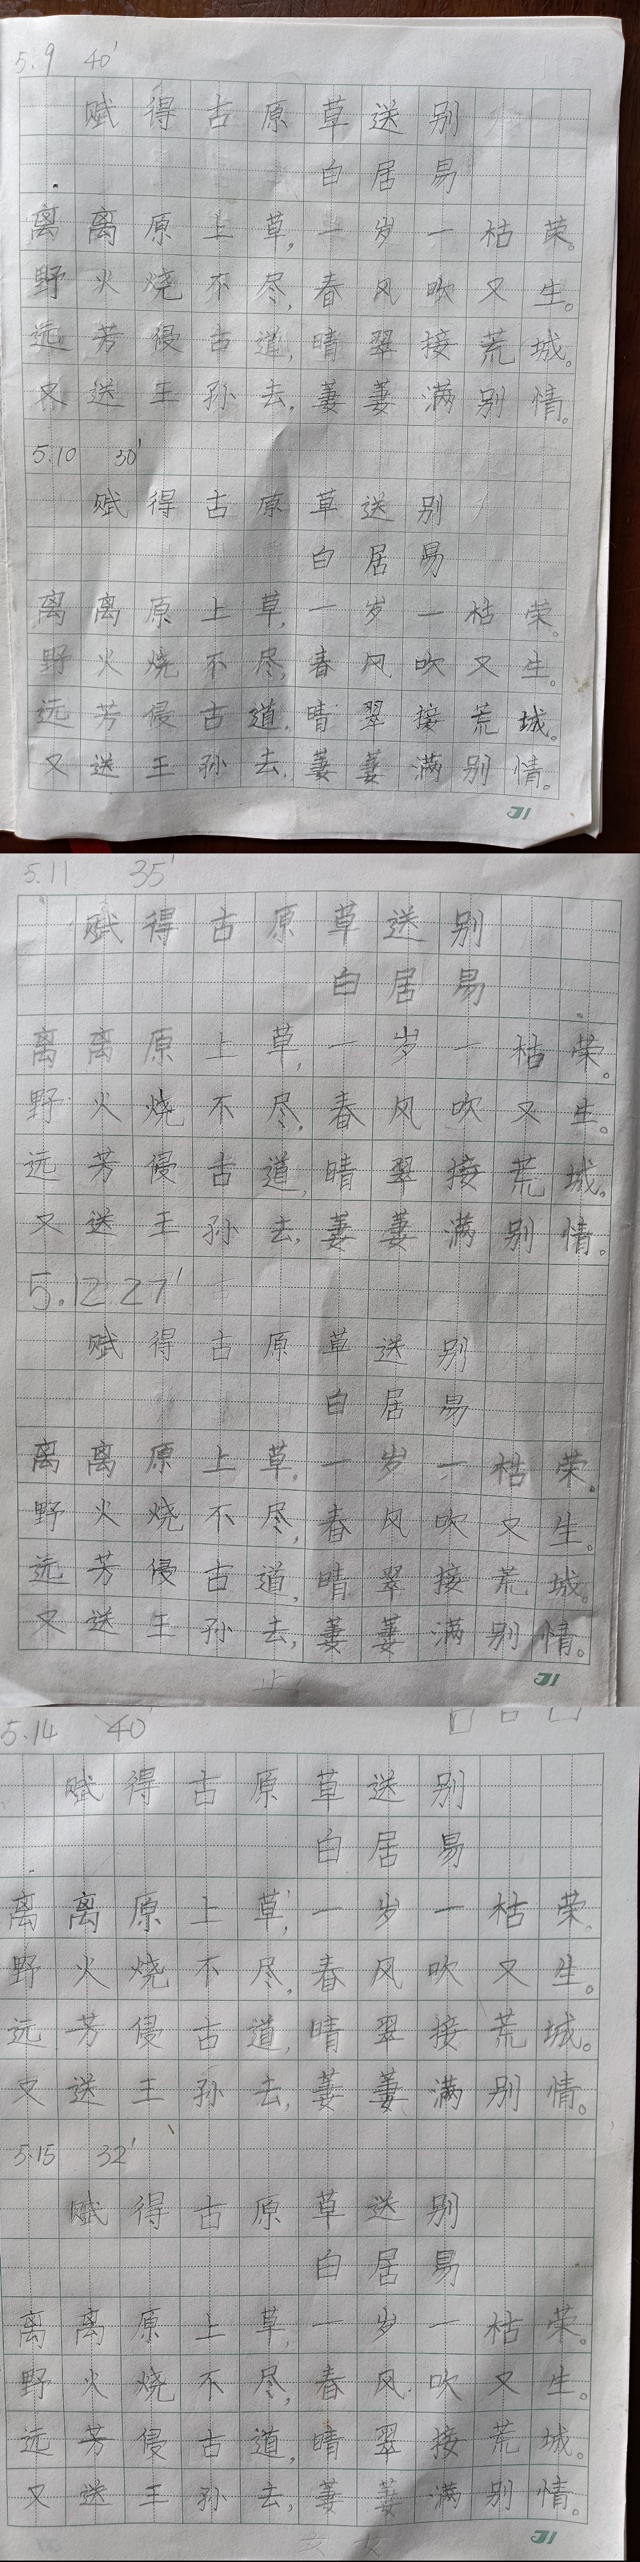 5.9 40'
赋得古原草送别
白居易
离离原上草,一岁一枯荣。
野火烧不尽,春风吹又生。
远芳侵古道,晴翠接荒城。
又送王孙去,萋萋满别情。
5.10 30'
赋得古原草送别
白居易
离离原上草,一岁一枯荣。
野火烧不尽,春风吹又生。
远芳侵古道,晴翠接荒城。
又送王孙去,萋萋满别情。
5.11 35'
赋得古原草送别
白居易
离离原上草,一岁一枯荣。
野火烧不尽,春风吹又生。
远芳侵古道,晴翠接荒城。
又送王孙去,萋萋满别情。
5.12 27'
赋得古原草送别
白居易
离离原上草,一岁一枯荣。
野火烧不尽,春风吹又生。
远芳侵古道,晴翠接荒城。
又送王孙去,萋萋满别情。
5.14 40'
赋得古原草送别
白居易
离离原上草,一岁一枯荣。
野火烧不尽,春风吹又生。
远芳侵古道,晴翠接荒城。
又送王孙去,萋萋满别情。
5.15 32'
赋得古原草送别
白居易
离离原上草,一岁一枯荣。
野火烧不尽,春风吹又生。
远芳侵古道,晴翠接荒城。
又送王孙去,萋萋满别情。